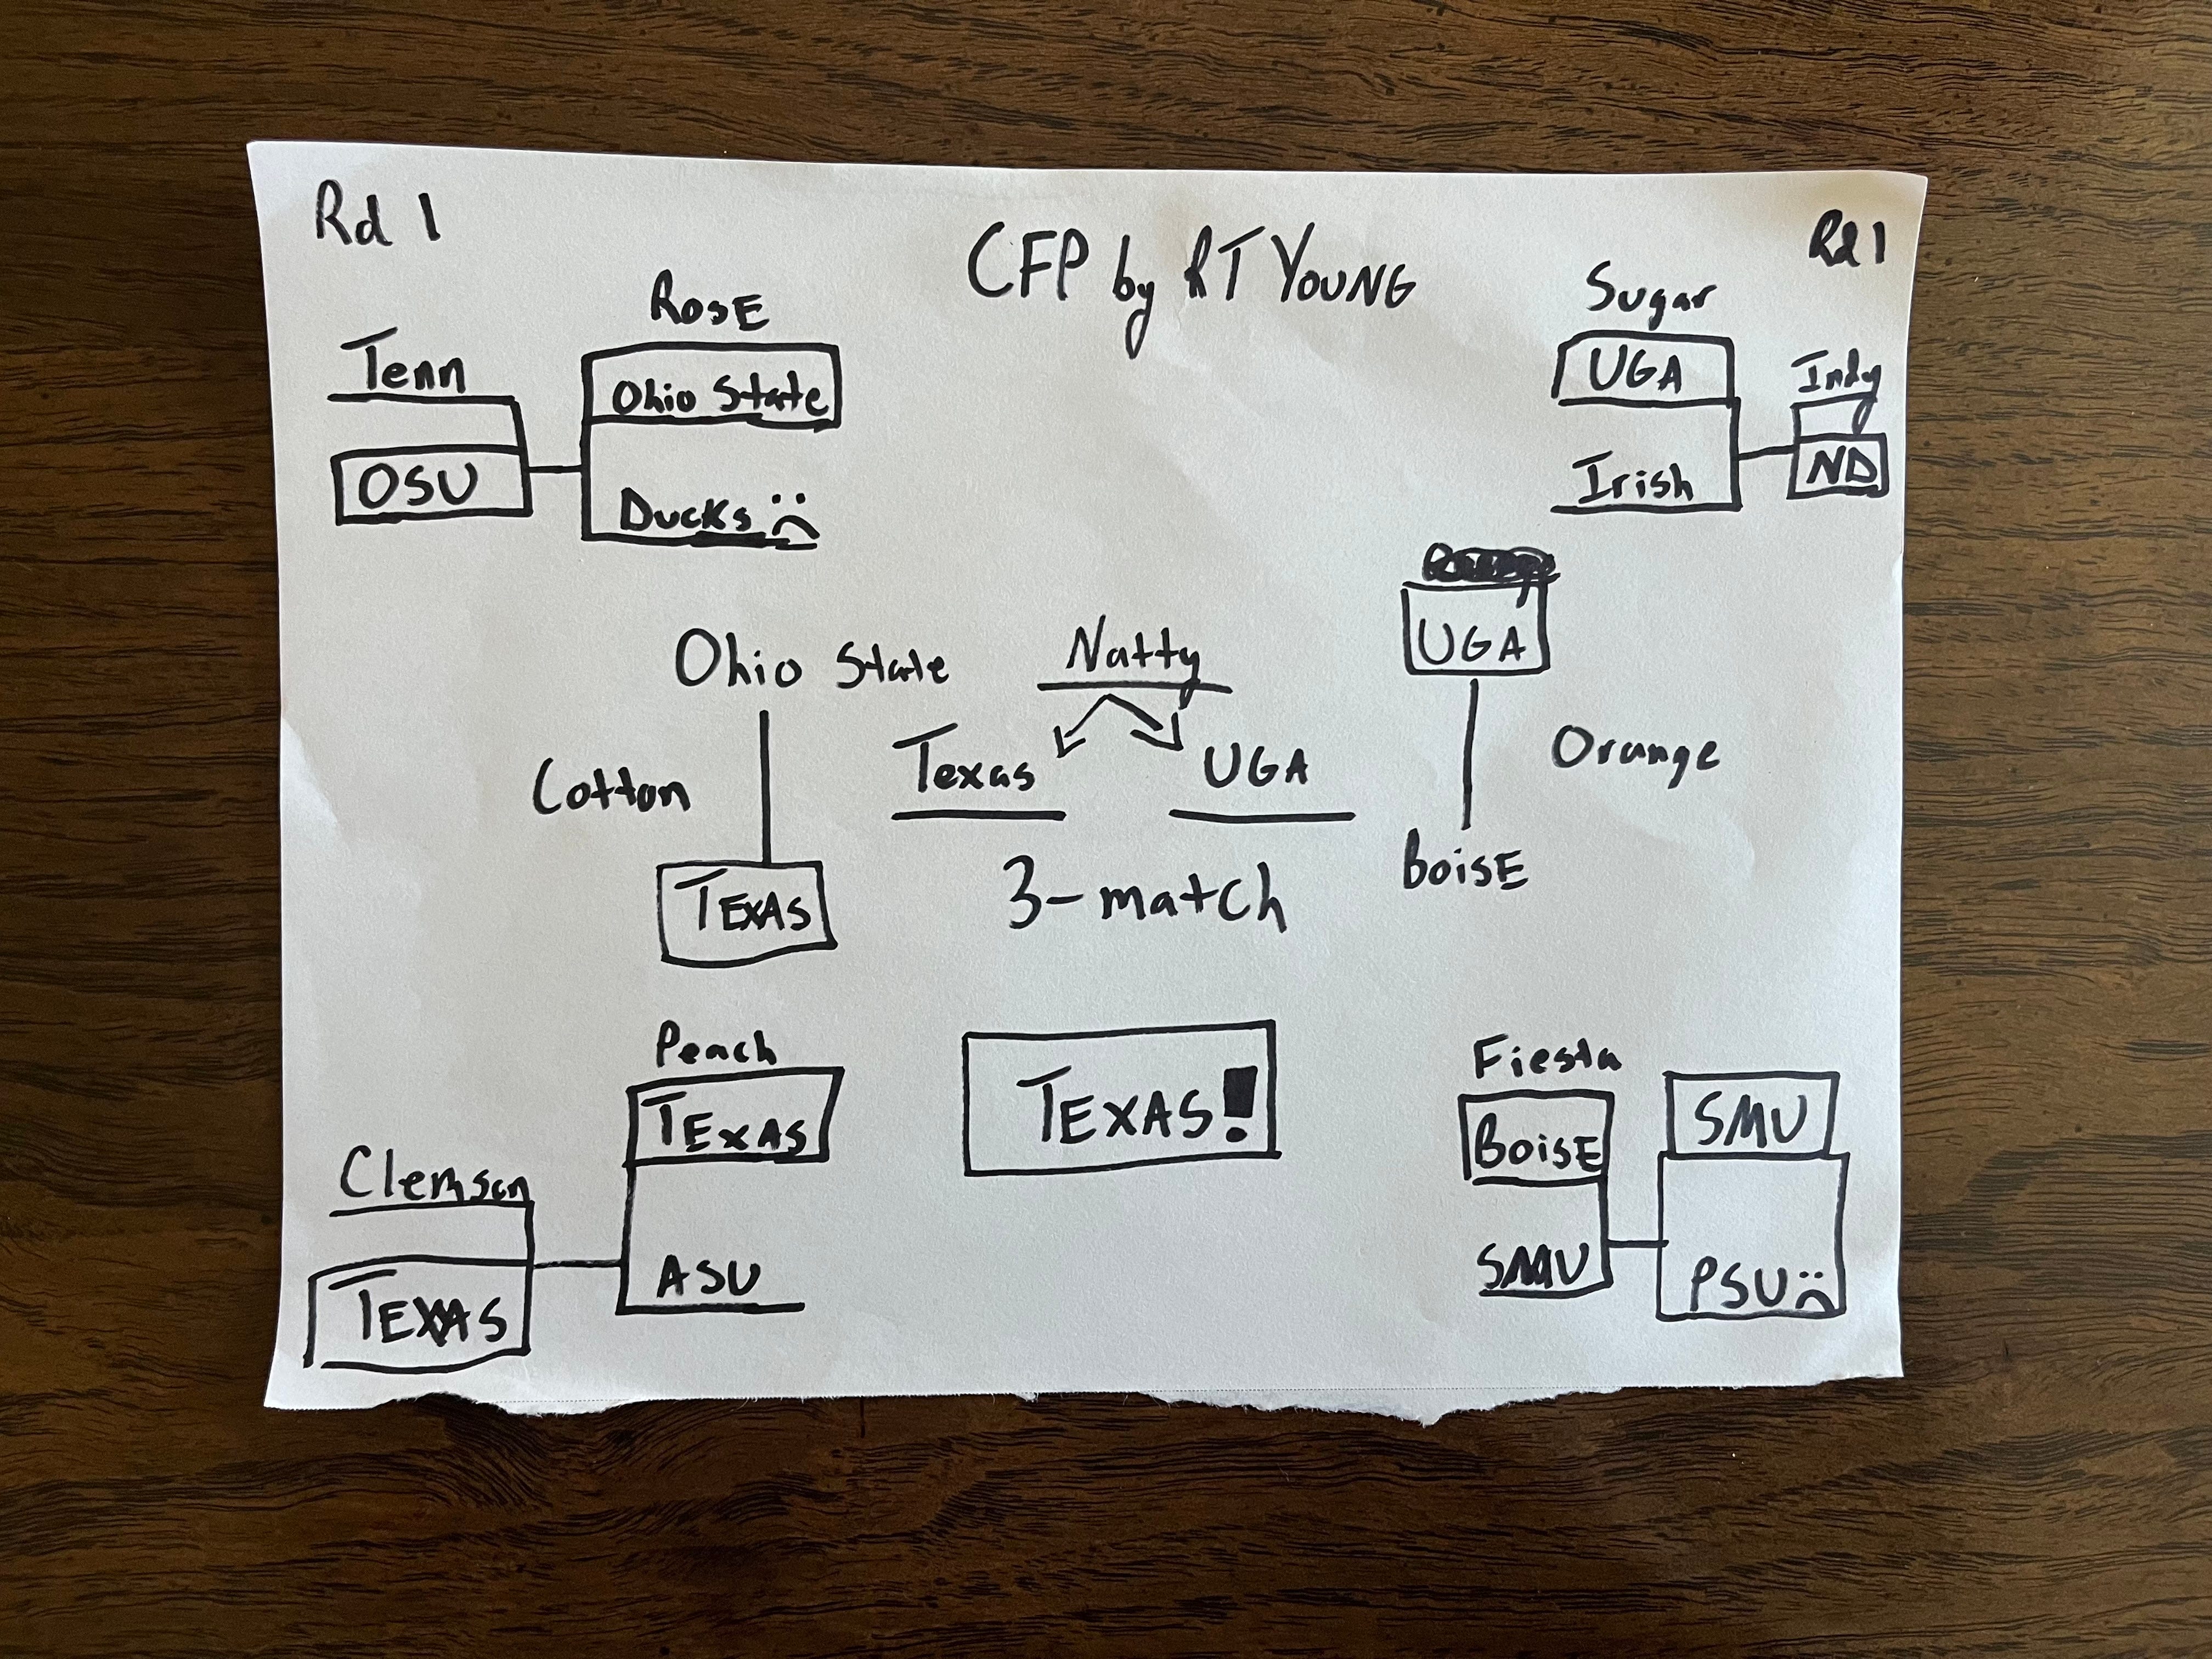 Rd 1
CFP by RT YOUNG
Rd 1
ROSE
Tenn
OSU
Ohio State
Ducks
Sugar
UGA
Irish
Indy
ND
Ohio State
Cotton
TEXAS
Natty
Texas
UGA
3-match
UGA
Orange
BOISE
Peach
TEXAS
ASU
Clemson
TEXAS
TEXAS!
Fiesta
BOISE
SMU
SMU
PSU